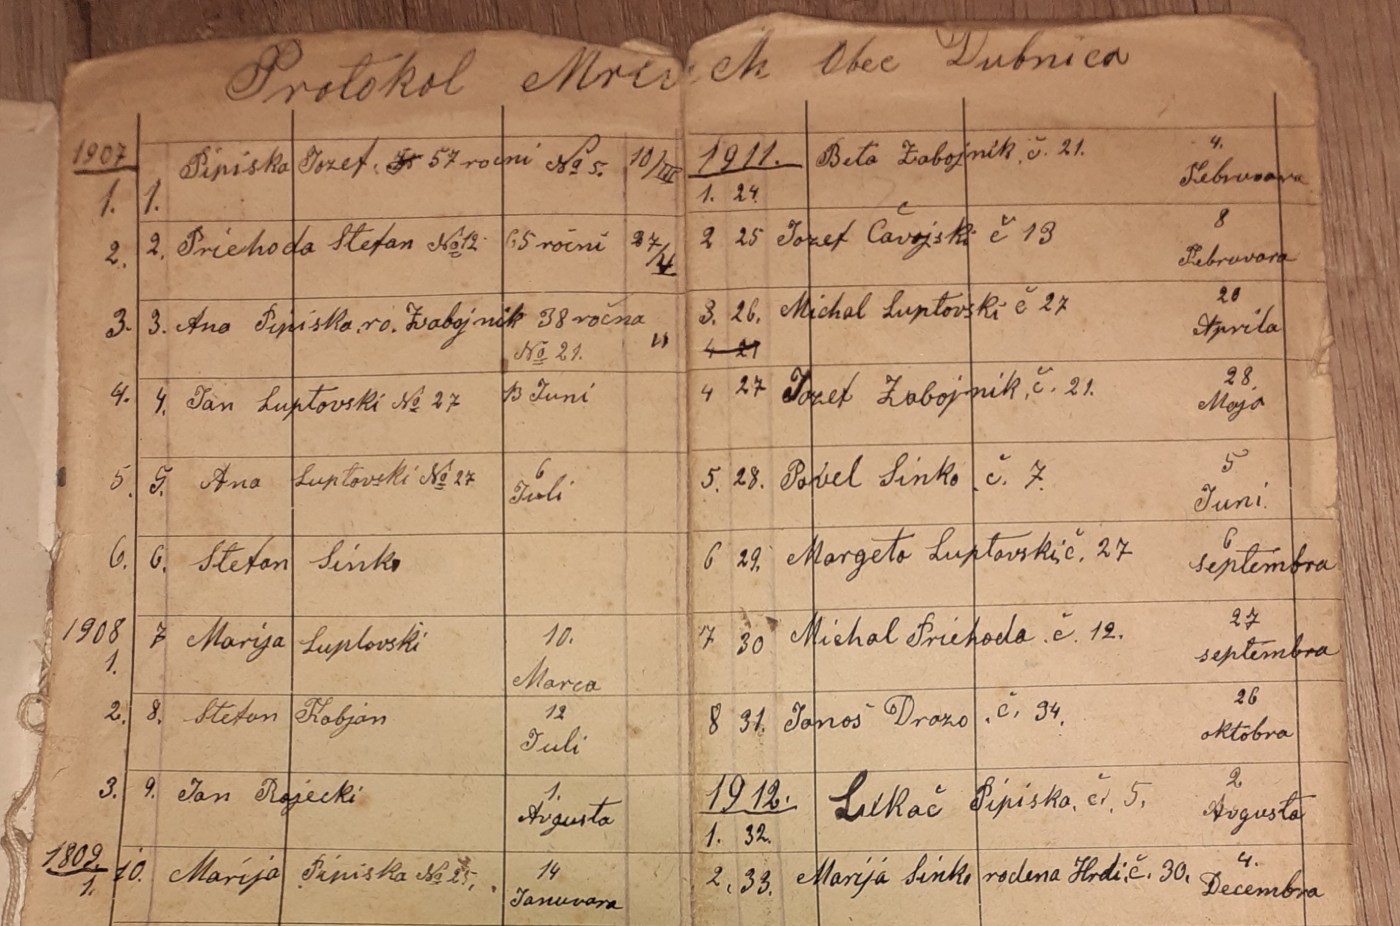 Protokol Mrcvch Obec Dubnica
1907 Pipiska Jozef 57 rocni № 5. 10/III
1. 1.
2. 2. Priehoda Stefan № 12 65 ročni 27/4
3. 3. Ana Pipiska ro. Zabojnik 38 ročna "
№ 21.
4. 4. Jan Luptovski № 27 13 Juni
5. 5. Ana Luptovski № 27 6
Juli
6. 6. Stefan Sinko
1908 7 Marija Luptovski 10.
1. Marca
2. 8. Stefan Kabjan 12
Juli
3. 9. Jan Rajecki 1.
Avgusta
1809. 10. Marija Pipiska № 25. 14
1. Januvara
1911. Beta Zabojnik č. 21. 4.
1. 24. Februvara
2 25 Jozef Čavojski č 13 8
Februvara
3. 26. Michal Luptovski č 27 20
4 27 Aprila
4 27 Jozef Zabojnik č. 21. 28.
Maja
5. 28. Pavel Sinko č. 7. 5
Juni.
6 29. Margeta Luptovski č. 27 6
septembra
7 30 Michal Priehoda č. 12. 27
septembra
8 31. Janoš Drazo č. 34. 26
oktobra
1912. Lukač Pipiska č. 5. 2
1. 32. Avgusta
2. 33. Marija Sinko rodena Hrdi č. 30. 4.
Decembra